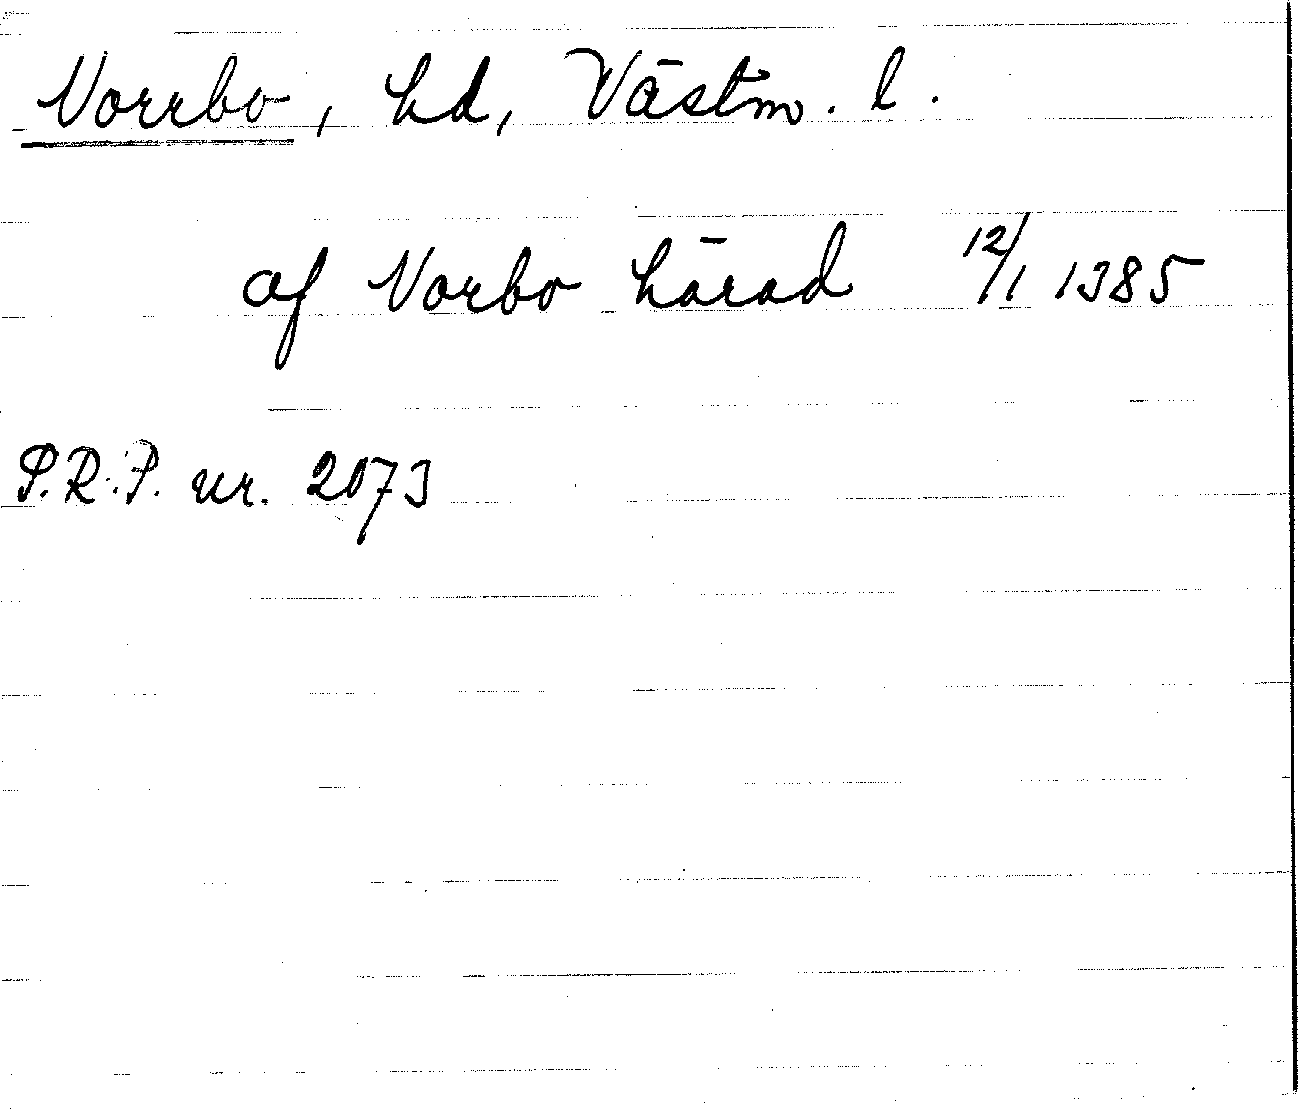 Norrbo, hd, Västm. l.
af Norbo härad 12/1 1385
S.R.P. nr. 2073